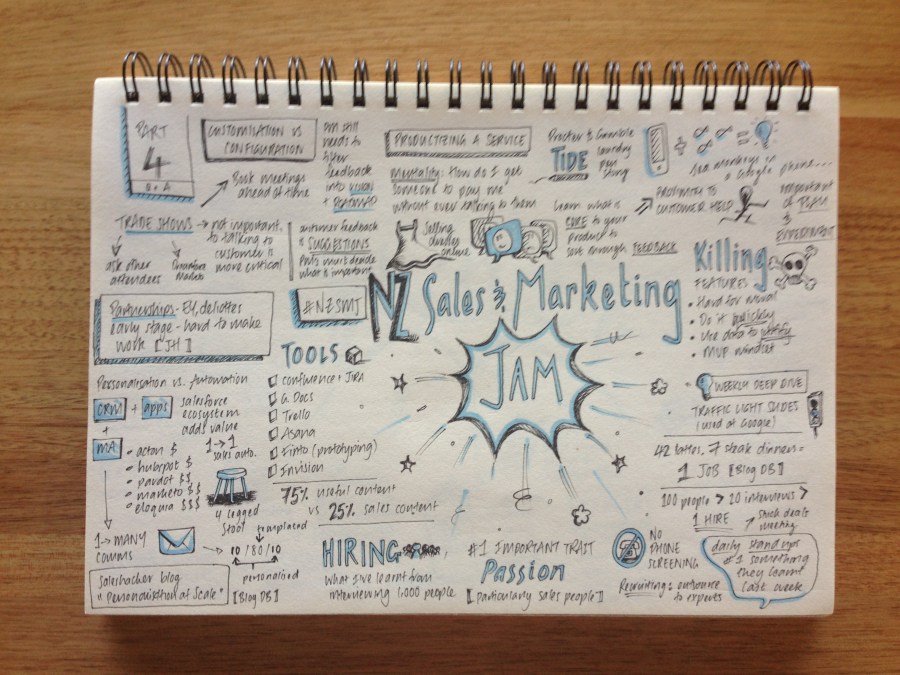 PART
4
Q & A
CUSTOMISATION VS
CONFIGURATION
Book meetings
ahead of time
PM still
needs to
filter
feedback
into VISION
+ ROADMAP
PRODUCTIZING A SERVICE
Mentality: How do I get
someone to pay me
without ever talking to them
Selling
online
Procter & Gamble
TIDE
laundry
pen
story
Learn what is
CORE to your
product to
through FEEDBACK
sea monkeys in
a Google phone...
PROXIMITY TO
CUSTOMER HELP
important
&
EXPERIMENT
TRADE SHOWS → not important
to talking to
customer is
more critical
ask other
attendees
customer feedback
is SUGGESTIONS
PMs must decide
what is important
Partnerships - EY, deloittes
early stage - hard to make
work [JH]
#NZSMJ
NZ Sales & Marketing
JAM
Killing
FEATURES
• Hard for
• Do it quickly
• Use data to
• MVP mindset
Personalisation vs. Automation
CRM + apps
salesforce
ecosystem
adds value
+
MA
• acton $
• hubspot $
• pardot $$
• marketo $$
• eloqua $$$
1→1
sales auto.
4 legged
stool
1→MANY
comms
templated
10 / 80 / 10
personalised
[Blog DB]
Saleshacker blog
"Personalisation at Scale"
TOOLS
confluence + JIRA
G. Docs
Trello
Asana
(prototyping)
Invision
75% useful content
vs 25% sales content
WEEKLY DEEP DIVE
TRAFFIC LIGHT SLIDES
(used at Google)
42 lattes, 7 steak dinners =
1 JOB [Blog DB]
100 people > 20 interviews >
1 HIRE
HIRING
what I've learnt from
interviewing 1,000 people
#1 IMPORTANT TRAIT
Passion
[particularly sales people]
NO
PHONE
SCREENING
Recruiting: outsource
to experts
daily stand ups
#1 something
they learnt
last week